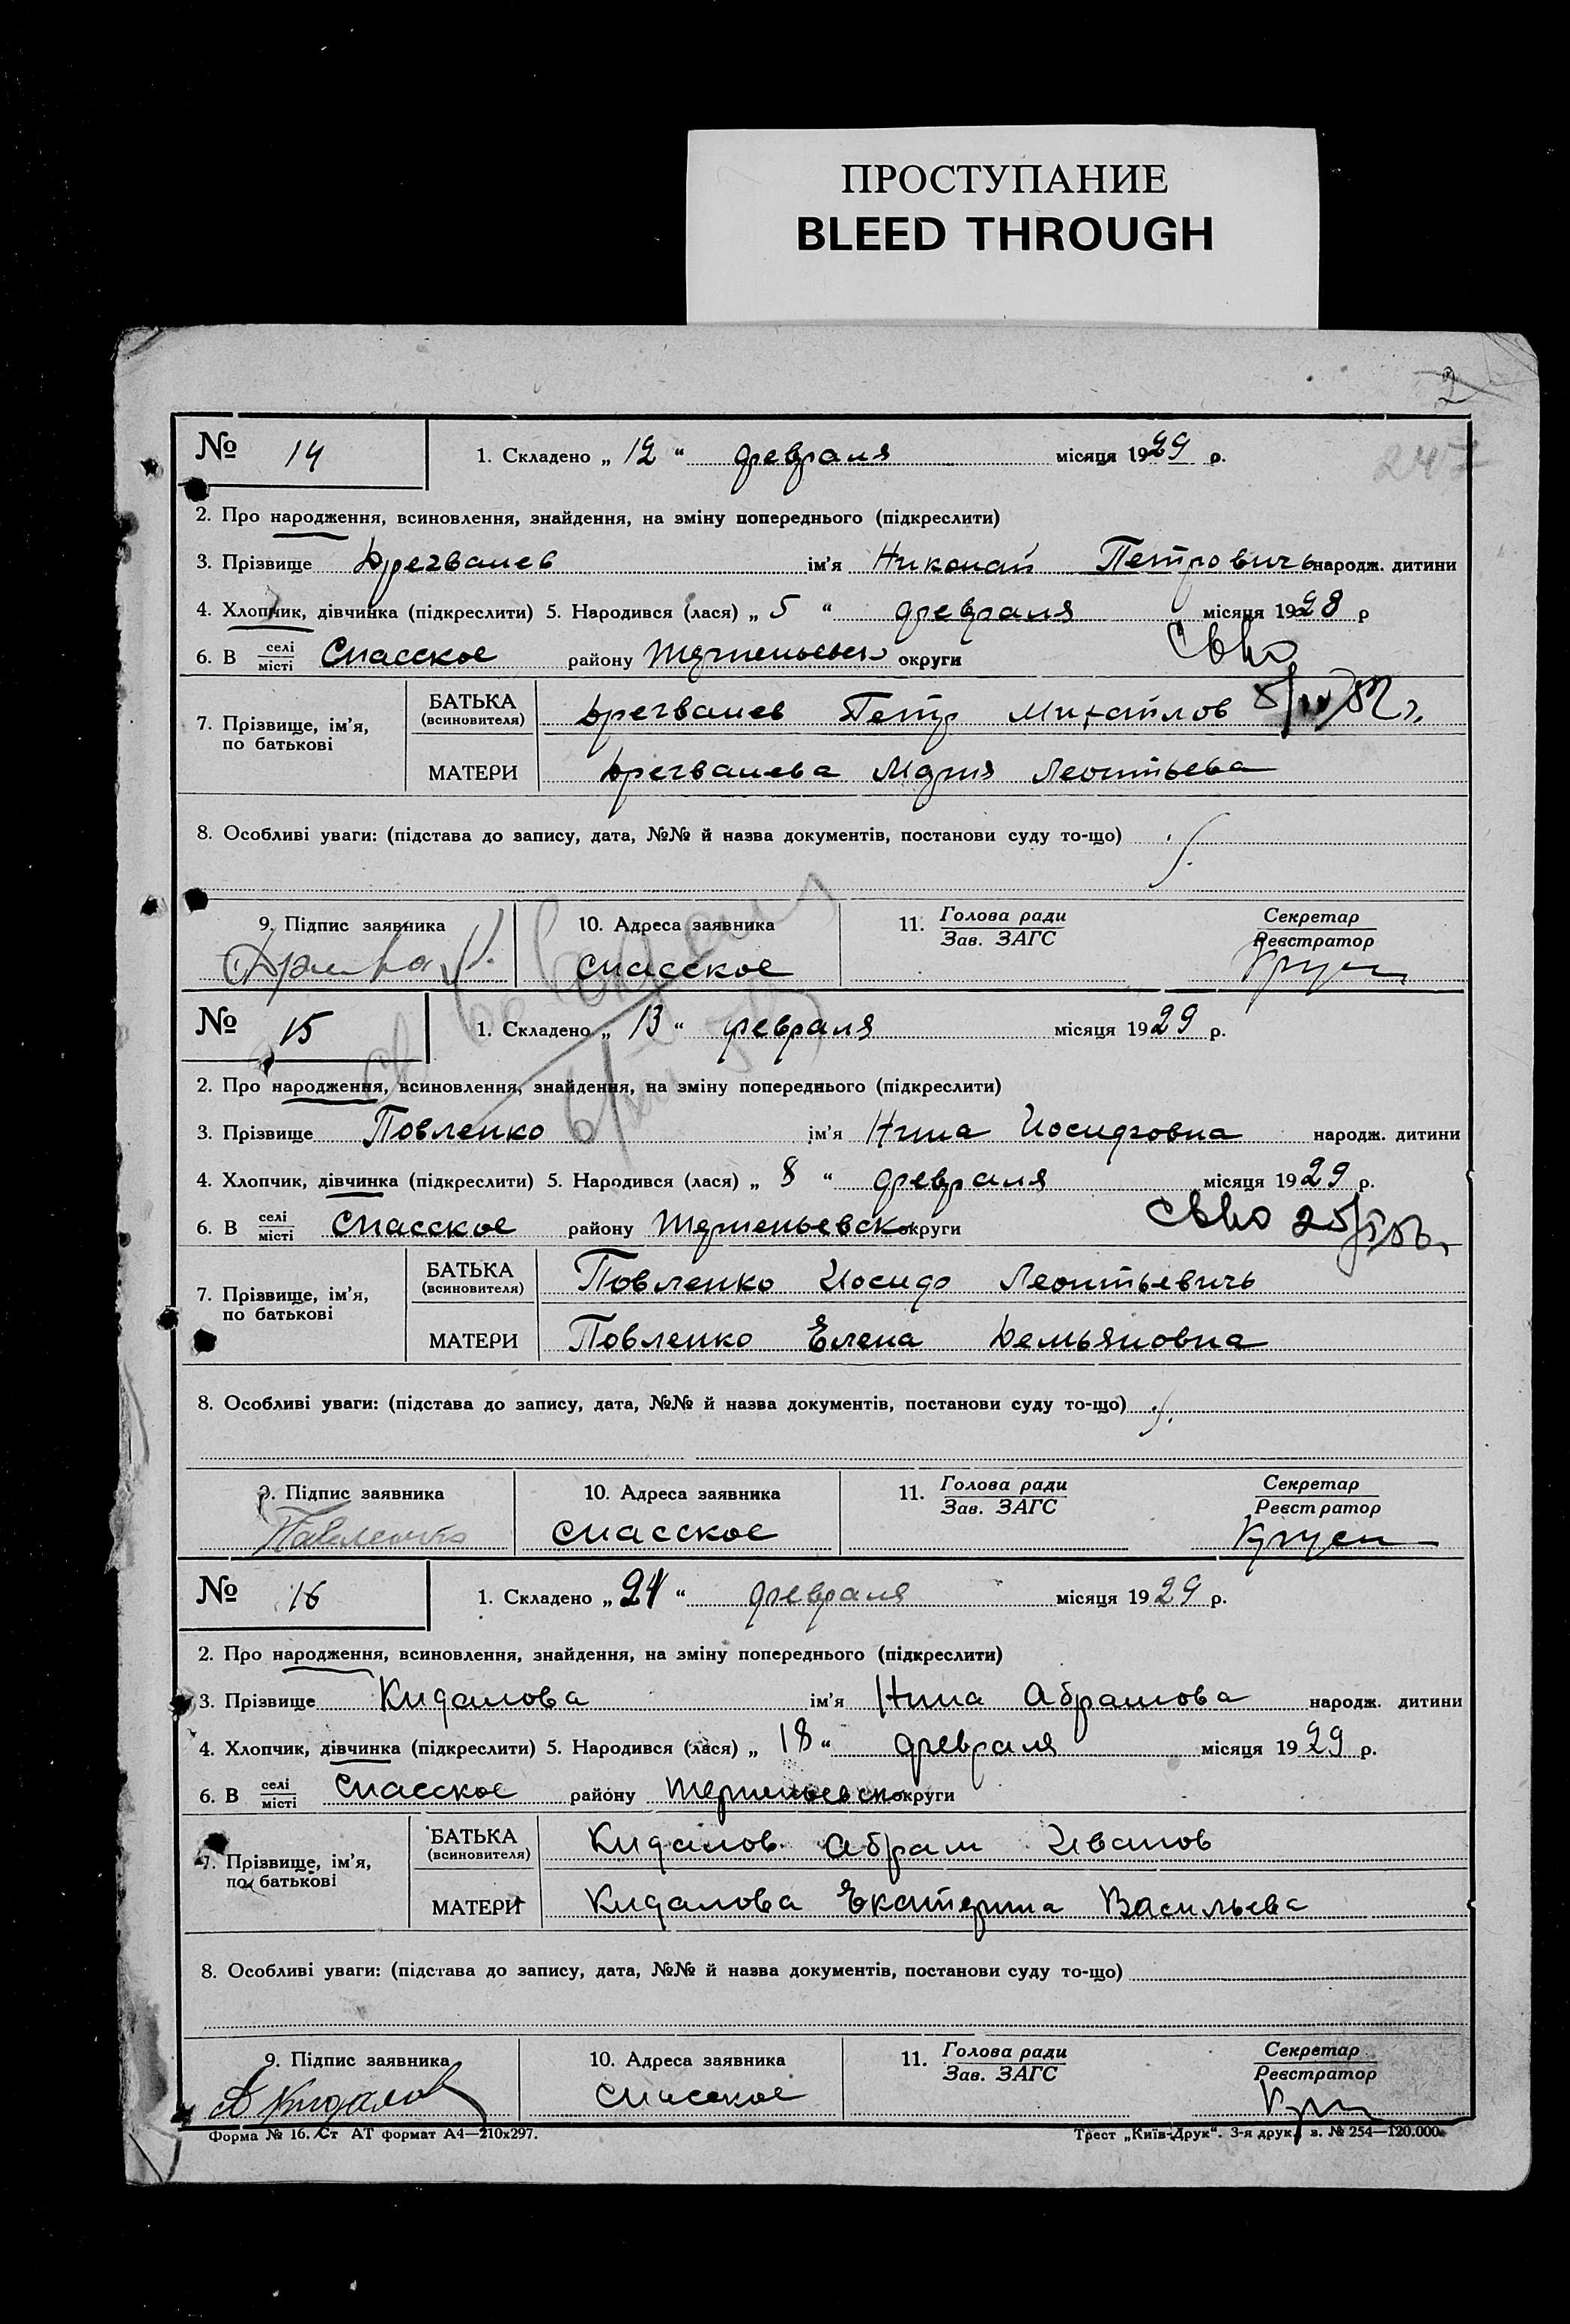 ПРОСТУПАНИЕ
BLEED THROUGH
2
247
№ 14 1. Складено „ 12 “ февраля місяця 1929 р.
2. Про народження, всиновлення, знайдення, на зміну попереднього (підкреслити)
3. Прізвище ім’я Николай Петровичь народж. дитини
4. Хлопчик, дівчинка (підкреслити) 5. Народився (лася) „ 5 “ февраля місяця 1928 р
6. В селі місті Спасское району округи
7. Прізвище, ім’я, по батькові БАТЬКА (всиновителя) Петр Михайлов
МАТЕРИ Мария Леонтьева
8. Особливі уваги: (підстава до запису, дата, №№ й назва документів, постанови суду то-що)
9. Підпис заявника 10. Адреса заявника 11. Голова ради Зав. ЗАГС Секретар Реєстратор
Спасское
№ 15 1. Складено „ 13 “ февраля місяця 1929 р.
2. Про народження, всиновлення, знайдення, на зміну попереднього (підкреслити)
3. Прізвище Повленко ім’я Нина Иосифовна народж. дитини
4. Хлопчик, дівчинка (підкреслити) 5. Народився (лася) „ 8 “ февраля місяця 1929 р.
6. В селі місті Спасское району округи
7. Прізвище, ім’я, по батькові БАТЬКА (всиновителя) Повленко Иосиф Леонтьевичь
МАТЕРИ Повленко Елена Демьяновна
8. Особливі уваги: (підстава до запису, дата, №№ й назва документів, постанови суду то-що)
9. Підпис заявника 10. Адреса заявника 11. Голова ради Зав. ЗАГС Секретар Реєстратор
Павленко Спасское
№ 16 1. Складено „ 24 “ февраля місяця 1929 р.
2. Про народження, всиновлення, знайдення, на зміну попереднього (підкреслити)
3. Прізвище Кидалова ім’я Нина Абрамова народж. дитини
4. Хлопчик, дівчинка (підкреслити) 5. Народився (лася) „ 18 “ февраля місяця 1929 р.
6. В селі місті Спасское району округи
7. Прізвище, ім’я, по батькові БАТЬКА (всиновителя) Кидалов Абрам Иванов
МАТЕРИ Кидалова Екатерина Васильева
8. Особливі уваги: (підстава до запису, дата, №№ й назва документів, постанови суду то-що)
9. Підпис заявника 10. Адреса заявника 11. Голова ради Зав. ЗАГС Секретар Реєстратор
А Кидалов Спасское
Форма № 16. Ст АТ формат А4—210х297. Трест „Київ-Друк“. 3-я друк. з. № 254—120.000.